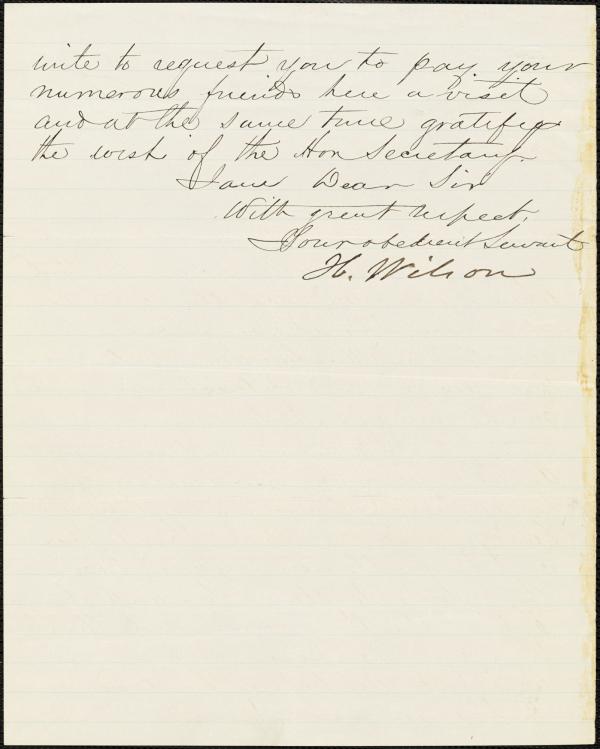 unite to request you to pay your
numerous friends here a visit
and at the same time gratify
the wish of the Hon Secretary.
I am Dear Sir
With great respect,
Your obedient Servant
H. Wilson